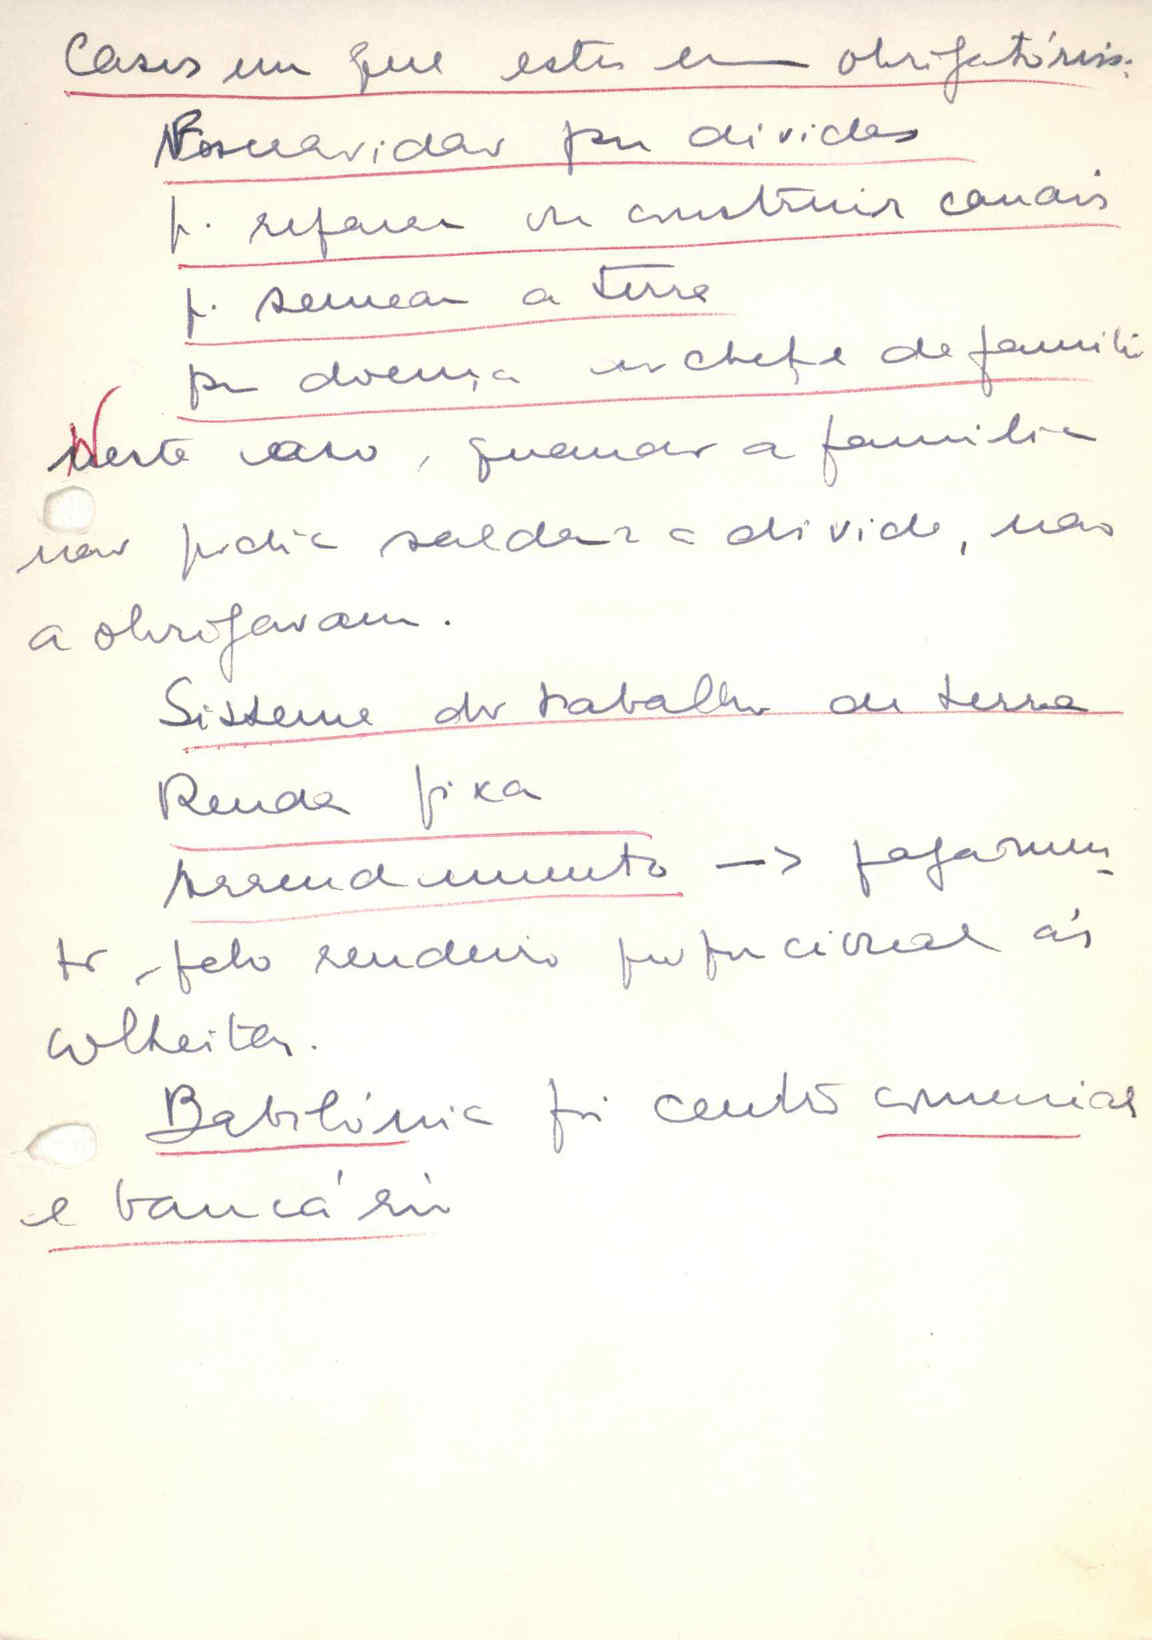 Casos em que estes eram obrigatórios:
Escravidão por dívidas
p. refazer ou construir canais
p. semear a terra
por doença do chefe de família
Neste caso, quando a família
não podia saldar a dívida, não
a obrigavam.
Sistema do trabalho da terra
Renda fixa
Arrendamento —> pagamen-
to, pelo rendeiro proporcional às
colheitas.
Babilónia foi centro comercial
e bancário